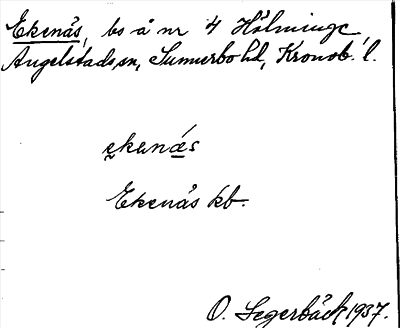 Ekenås, bs å nr 4 Hölminge,
Angelstads sn, Sunnerbo hd, Kronob. l.
ekenás
Ekenås kb.
O. Segerbäck 1937.